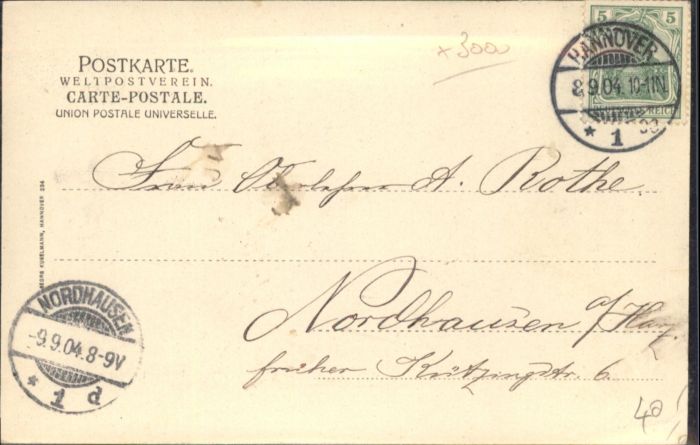 POSTKARTE.
WELTPOSTVEREIN.
CARTE-POSTALE.
UNION POSTALE UNIVERSELLE.
+300
5 5
HANNOVER
8.9.04. 10-11N.
* 1
Frau Oberlehrer A. Rothe
Nordhausen a/Harz.
früher Kützingstr. 6.
GEORG KUGELMANN, HANNOVER
NORDHAUSEN
-9.9.04.8-9V
* 1 d